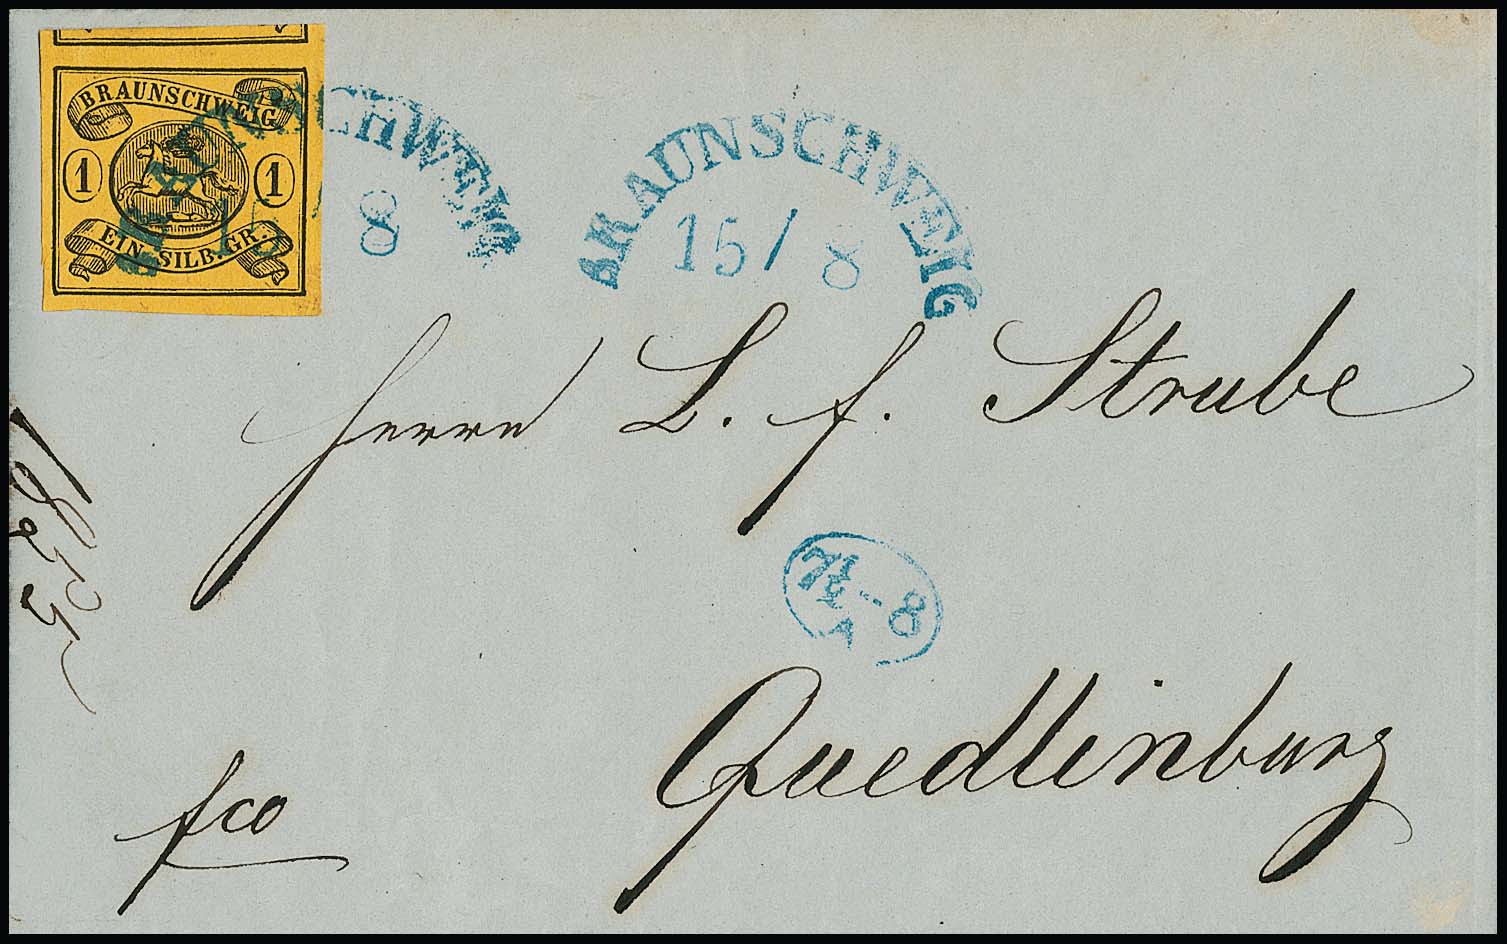 BRAUNSCHWEIG
1 1
EIN SILB. GR.
BRAUNSCHWEIG
8
BRAUNSCHWEIG
15 / 8
Herrn L. F. Strube
7½--8
Quedlinburg
fco
1855